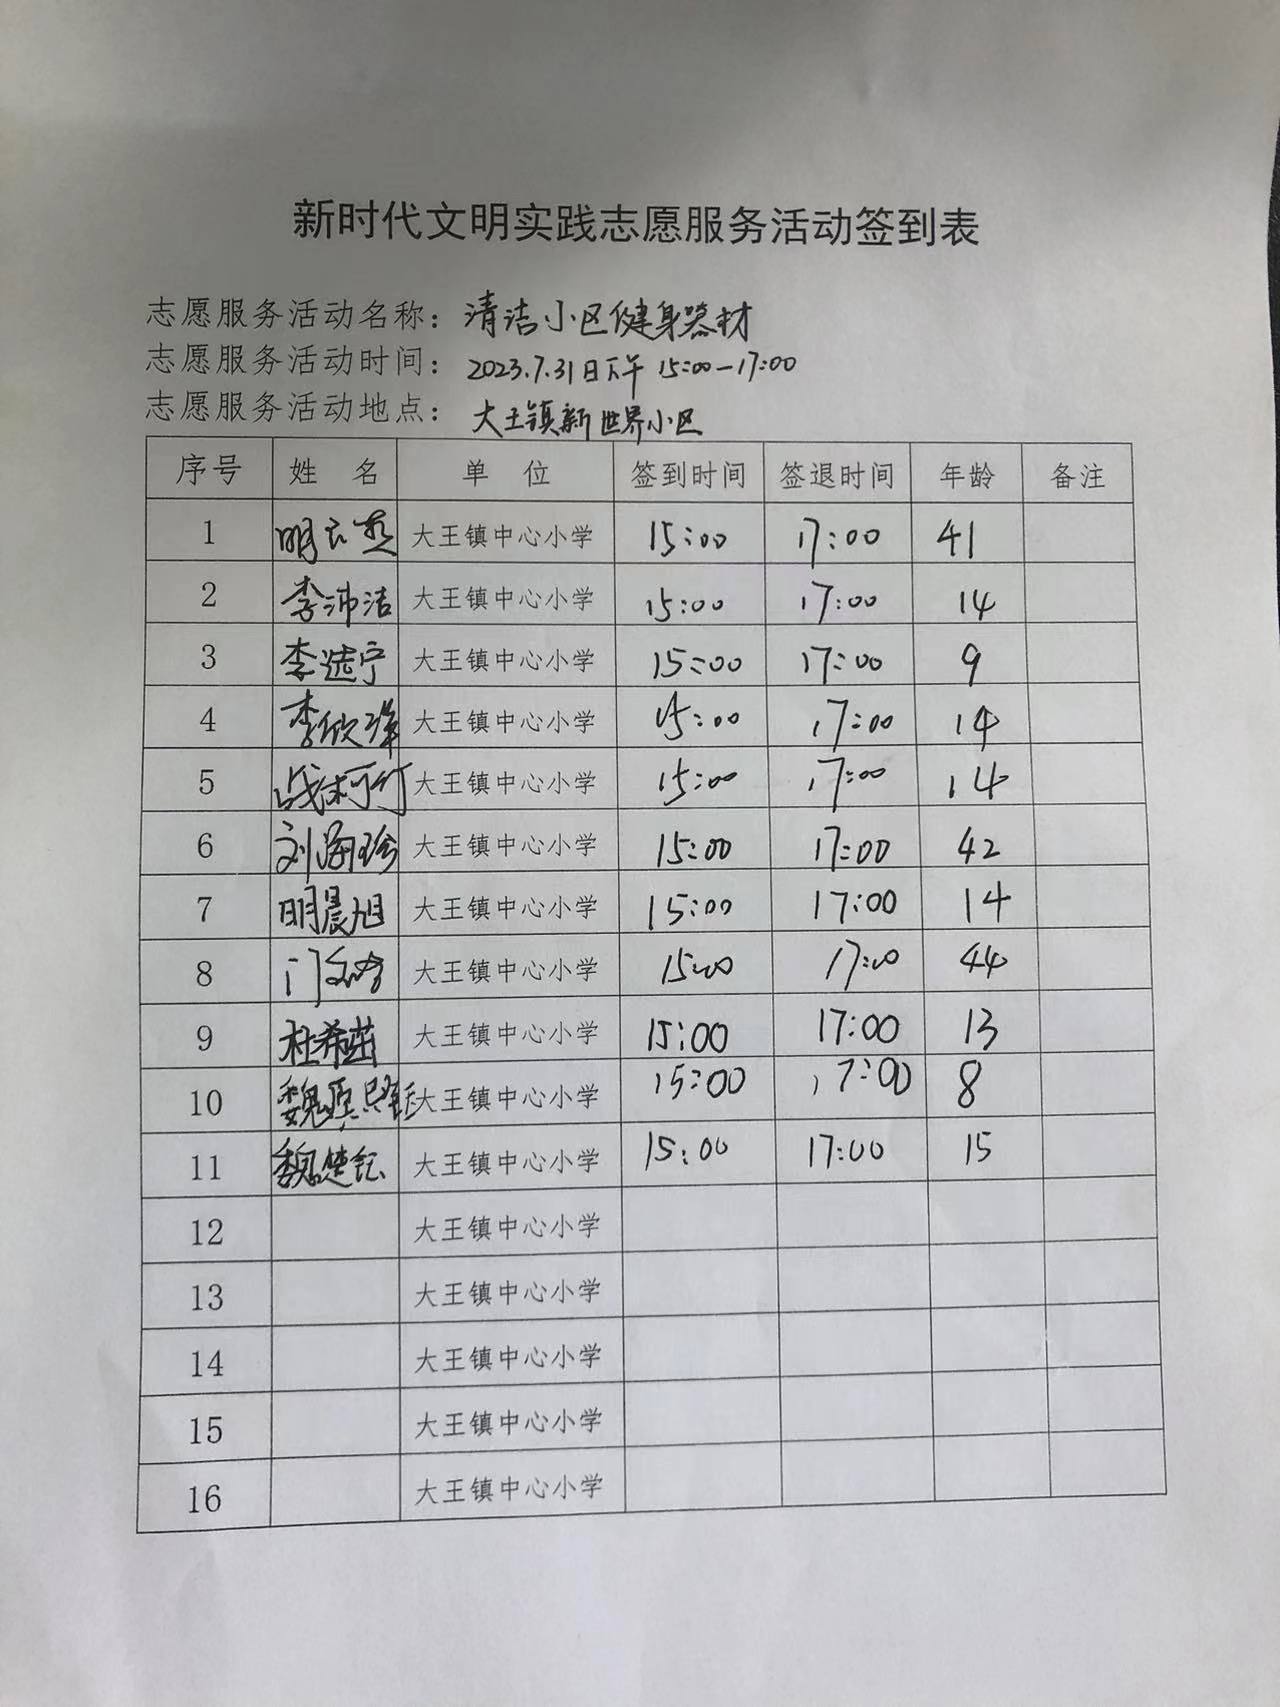 新时代文明实践志愿服务活动签到表
志愿服务活动名称：清洁小区健身器材
志愿服务活动时间：2023.7.31日下午 15:00-17:00
志愿服务活动地点：大王镇新世界小区
序号 姓 名 单 位 签到时间 签退时间 年龄 备注
1 明云 大王镇中心小学 15:00 17:00 41
2 李沛洁 大王镇中心小学 15:00 17:00 14
3 李 宁 大王镇中心小学 15:00 17:00 9
4 李欣 大王镇中心小学 15:00 17:00 14
5 战柯竹 大王镇中心小学 15:00 17:00 14
6 刘海珍 大王镇中心小学 15:00 17:00 42
7 明晨旭 大王镇中心小学 15:00 17:00 14
8 门 大王镇中心小学 15:00 17:00 44
9 杜希茁 大王镇中心小学 15:00 17:00 13
10 魏 大王镇中心小学 15:00 17:00 8
11 魏楚钰 大王镇中心小学 15:00 17:00 15
12 大王镇中心小学
13 大王镇中心小学
14 大王镇中心小学
15 大王镇中心小学
16 大王镇中心小学